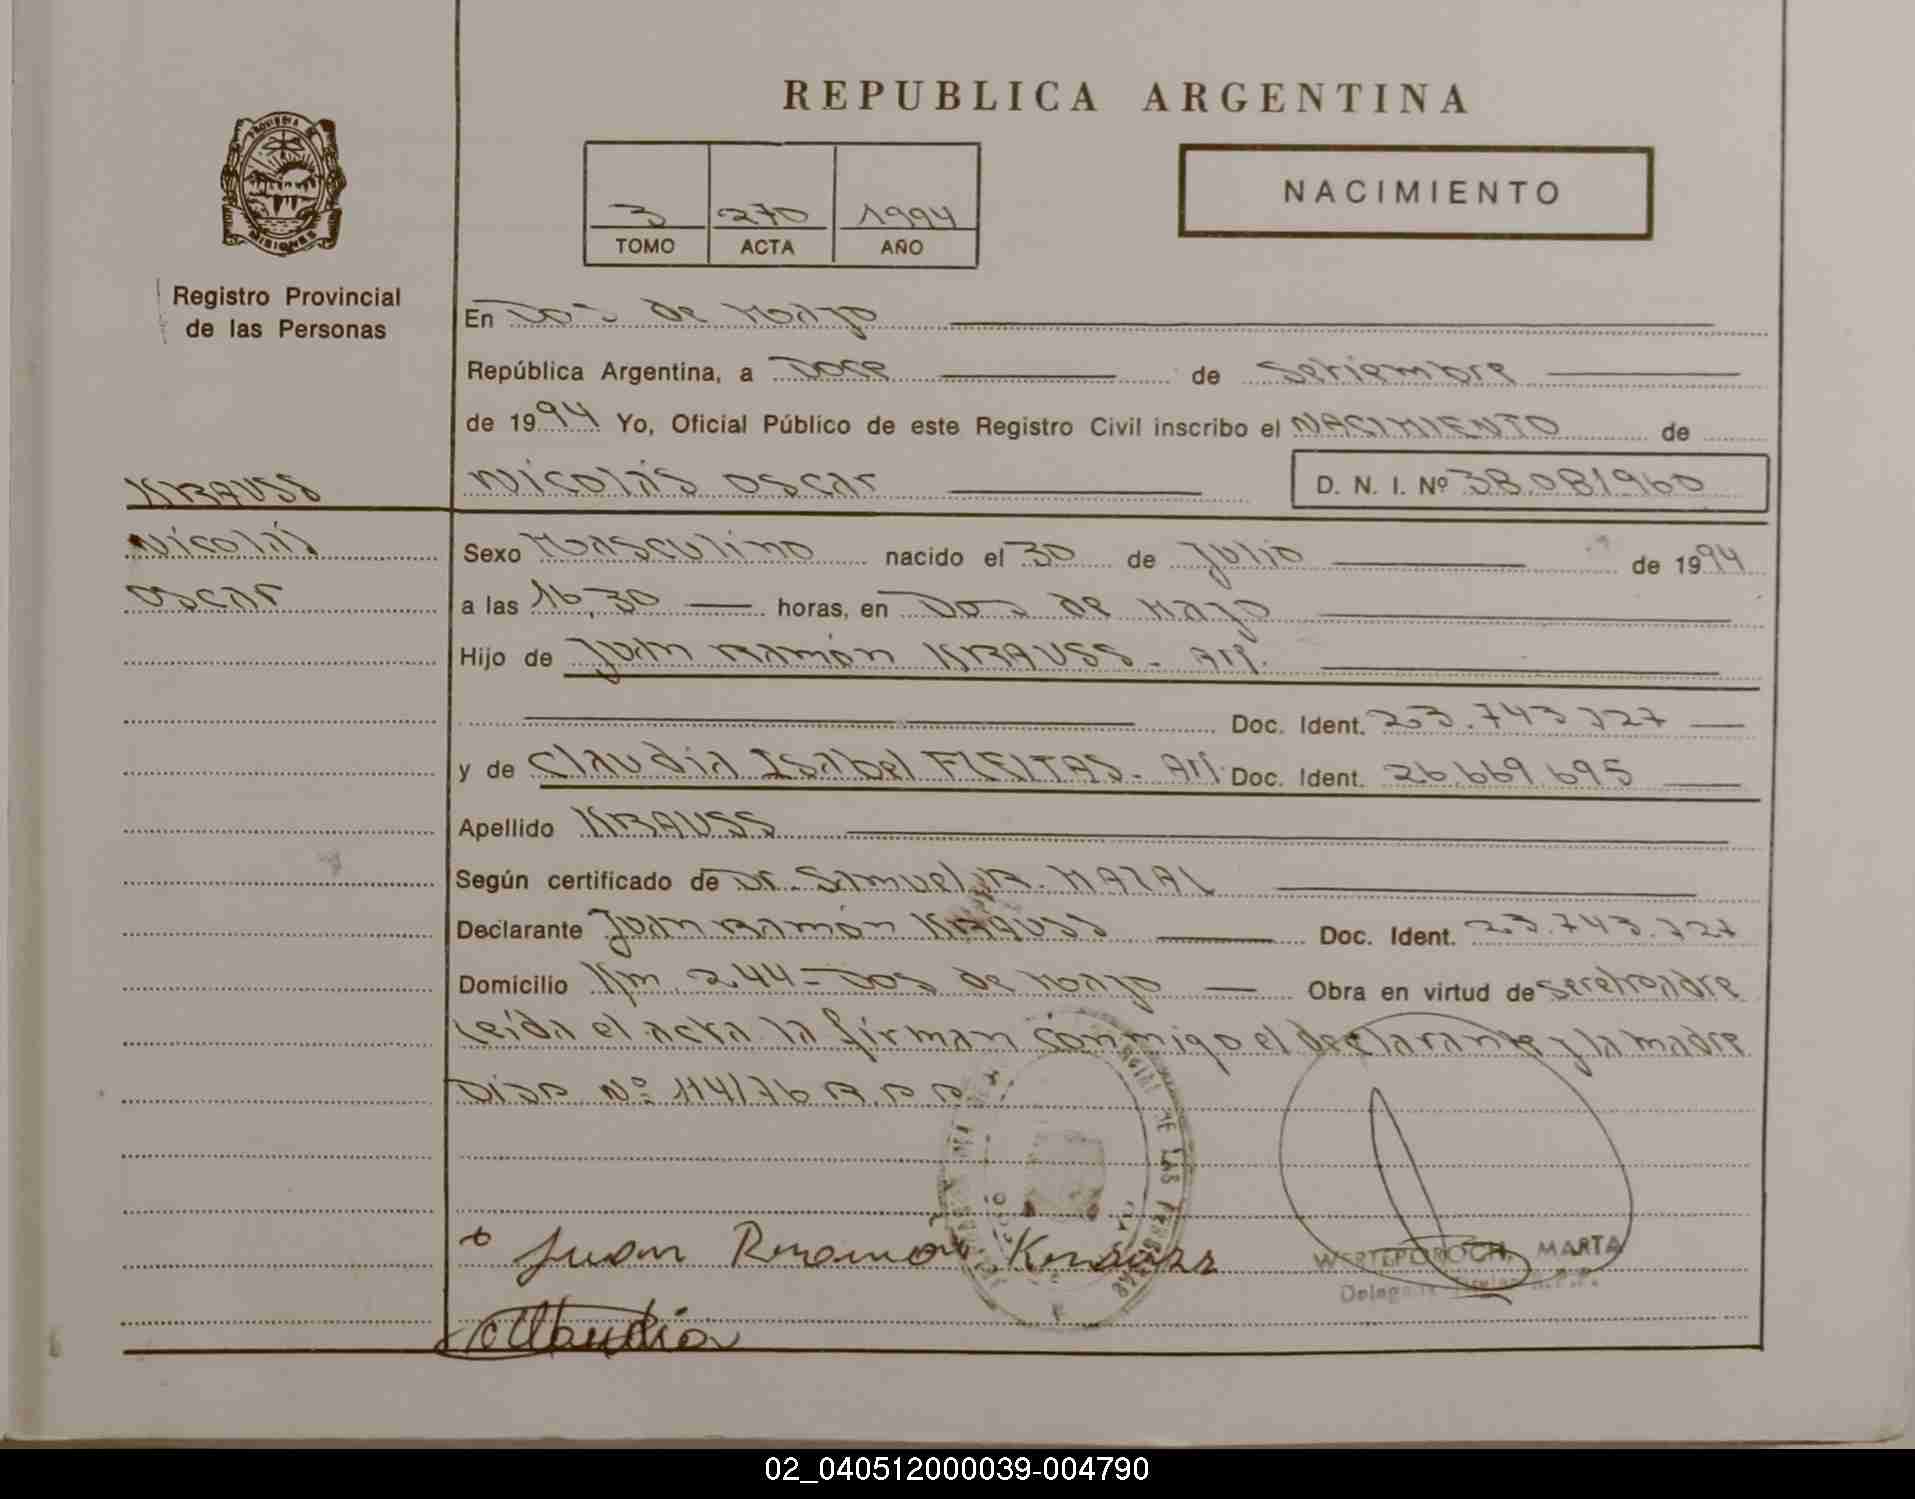 REPUBLICA ARGENTINA
PROVINCIA DE MISIONES
3 270 1994
TOMO ACTA AÑO
NACIMIENTO
Registro Provincial
de las Personas
En Dos de Mayo
República Argentina, a Doce de Setiembre
de 1994 Yo, Oficial Público de este Registro Civil inscribo el NACIMIENTO de
KRAUSS
Nicolás Oscar D. N. I. Nº 38.081.960
Nicolás
Oscar
Sexo Masculino nacido el 30 de Julio de 1994
a las 16,30 horas, en Dos de Mayo
Hijo de Juan Ramón KRAUSS - Arg.
Doc. Ident. 23.743.727
y de Claudia Isabel FREITAS - Arg. Doc. Ident. 26.669.695
Apellido KRAUSS
Según certificado de Dr. Samuel R. MAZAL
Declarante Juan Ramón KRAUSS Doc. Ident. 23.743.727
Domicilio Km 244 - Dos de Mayo Obra en virtud de ser el padre
Leída el acta la firman conmigo el declarante y la madre
DISP Nº 114/76 R.P.P.
Juan Ramon Krauss
WERTEPOROCH, MARTA
Claudia
02_040512000039-004790